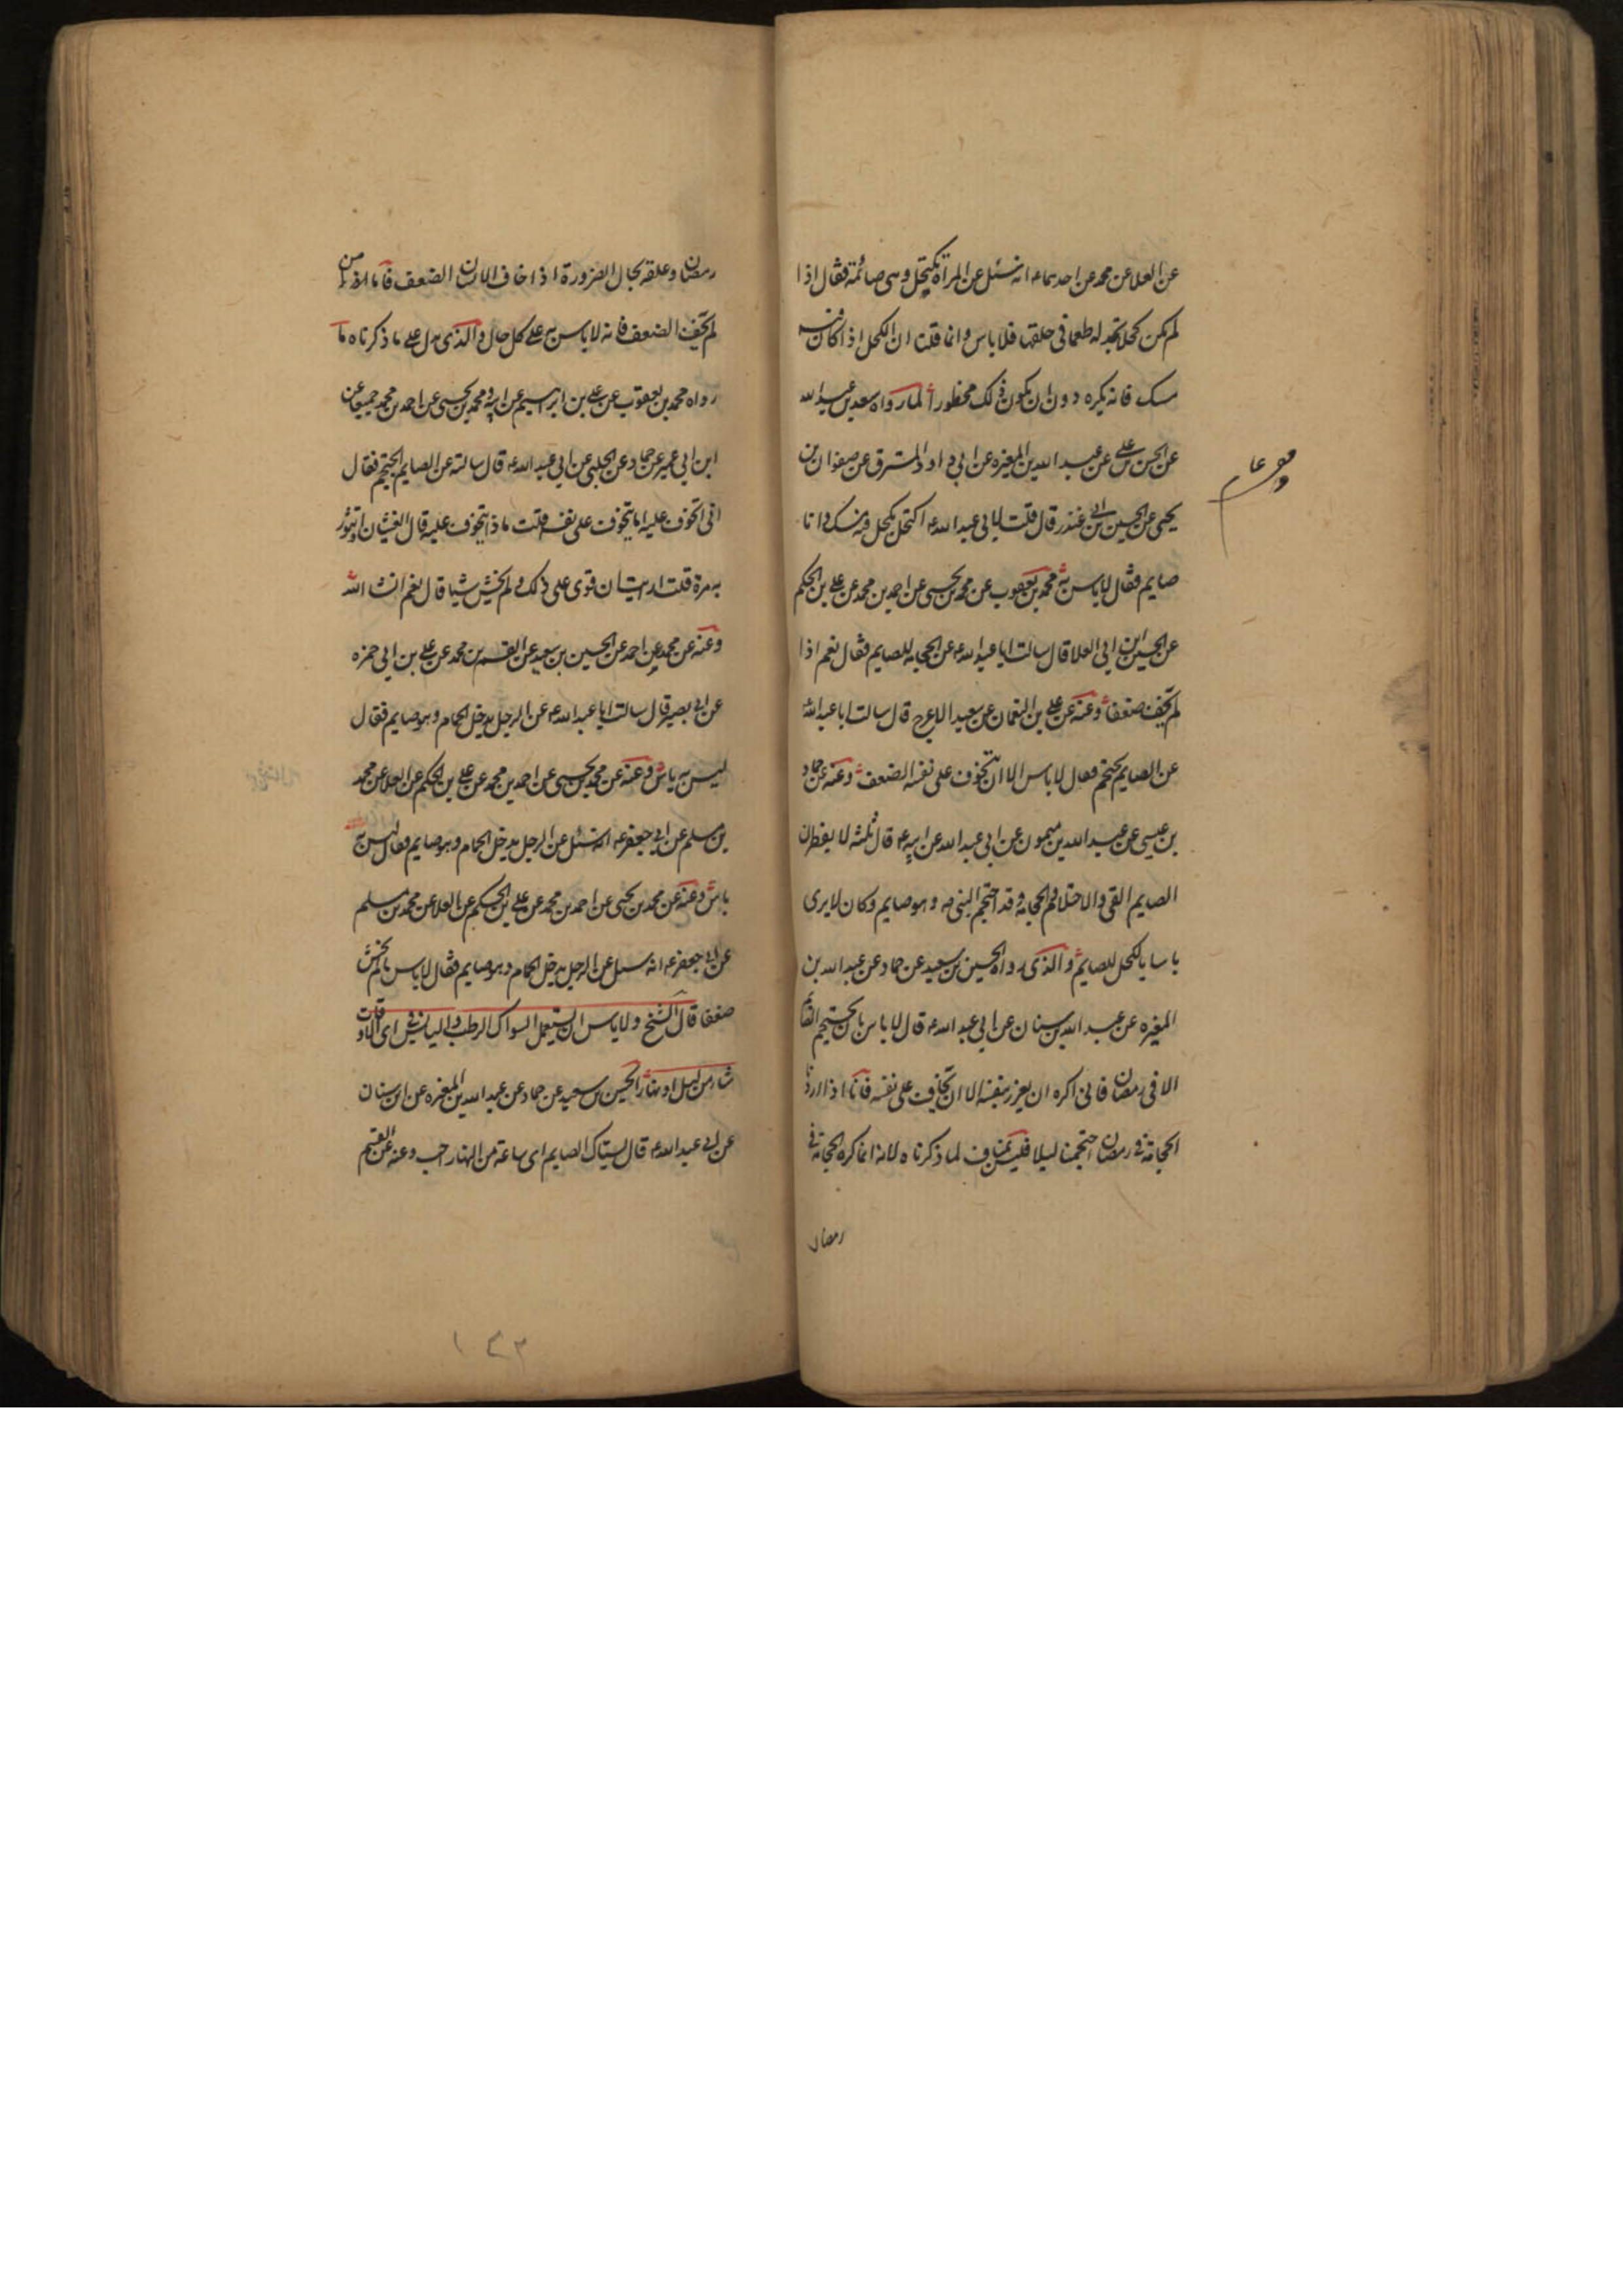 عن العلا عن محمد عن احدهما ع انه سئل عن المراة تكتحل وهى صائمة فقال اذا
لم يكن كحلا تجد له طعما فى حلقها فلا باس وانما قلت ان الكحل اذا كان فيه
مسك فانه يكره دون ان يكون ذلك محظورا لما رواه سعد بن عبد الله
عن الحسن بن على عن عبد الله بن المغيره عن ابى داود المسترق عن صفوان بن
يحيى عن الحسين بن ابى غندر قال قلت لابى عبد الله ع اكتحل بكحل فيه مسك وانا
صايم فقال لا باس به محمد بن يعقوب عن محمد بن يحيى عن احمد بن محمد عن على بن الحكم
عن الحسين ابن ابى العلا قال سالت ابا عبد الله ع عن الحجامه للصايم فقال نعم اذا
لم يخف ضعفا وعنه عن على بن النعمان عن سعيد الاعرج قال سالت ابا عبد الله
عن الصايم يحتجم فقال لا باس الا ان يتخوف على نفسه الضعف وعنه عن حماد
بن عيسى عن عبد الله بن ميمون عن ابى عبد الله عن ابيه ع قال ثلثه لا يفطرن
الصايم القى والاحتلام والحجامة وقد احتجم النبى ص وهو صايم وكان لا يرى
باسا بالكحل للصايم والذى رواه الحسين بن سعيد عن حماد عن عبد الله بن
المغيره عن عبد الله بن سنان عن ابى عبد الله ع قال لا باس بان يحتجم الصائم
الا فى رمضان فانى اكره ان يغرر بنفسه الا ان يخاف على نفسه فانا اذا اردنا
الحجامة فى رمضان احتجمنا ليلا فليس بمناف لما ذكرناه لانه انما كره الحجامة فى
رمضان
رمضان وعلقه بحال الضرورة اذا خاف الانسان الضعف فاما اذا من
لم يخف الضعف فانه لا باس به على كل حال والذى يدل على ما ذكرناه ما
رواه محمد بن يعقوب عن على بن ابراهيم عن ابيه ومحمد بن يحيى عن احمد بن محمد جميعا عن
ابن ابى عمير عن حماد عن الحلبى عن ابى عبد الله ع قال سالته عن الصايم ايحتجم فقال
انى اتخوف عليه اما يتخوف على نفسه قلت ماذا يتخوف عليه قال الغثيان او تثور
به مرة قلت ارايت ان قوى على ذلك ولم يخش شيئا قال نعم ان شاء الله
وعنه عن محمد عن احمد عن الحسين بن سعيد عن القسم بن محمد عن على بن ابى حمزه
عن ابى بصير قال سالت ابا عبد الله ع عن الرجل يدخل الحمام وهو صايم فقال
ليس به باس وعنه عن محمد بن يحيى عن احمد بن محمد عن على بن الحكم عن العلا عن محمد
بن مسلم عن ابى جعفر ع انه سئل عن الرجل يدخل الحمام وهو صايم فقال ليس به
باس وعنه عن محمد بن يحيى عن احمد بن محمد عن على بن الحكم عن العلا عن محمد بن مسلم
عن ابى جعفر ع انه سئل عن الرجل يدخل الحمام وهو صايم فقال لا باس ما لم يخش
ضعفا قال الشيخ ولا باس ان يستعمل السواك الرطب واليابس فى اى الاوقات
شاء من ليل او نهار الحسين بن سعيد عن حماد عن عبد الله بن المغيره عن ابن سنان
عن ابى عبد الله ع قال يستاك الصايم اى ساعة من النهار احب وعنه عن القسم
١٤٣